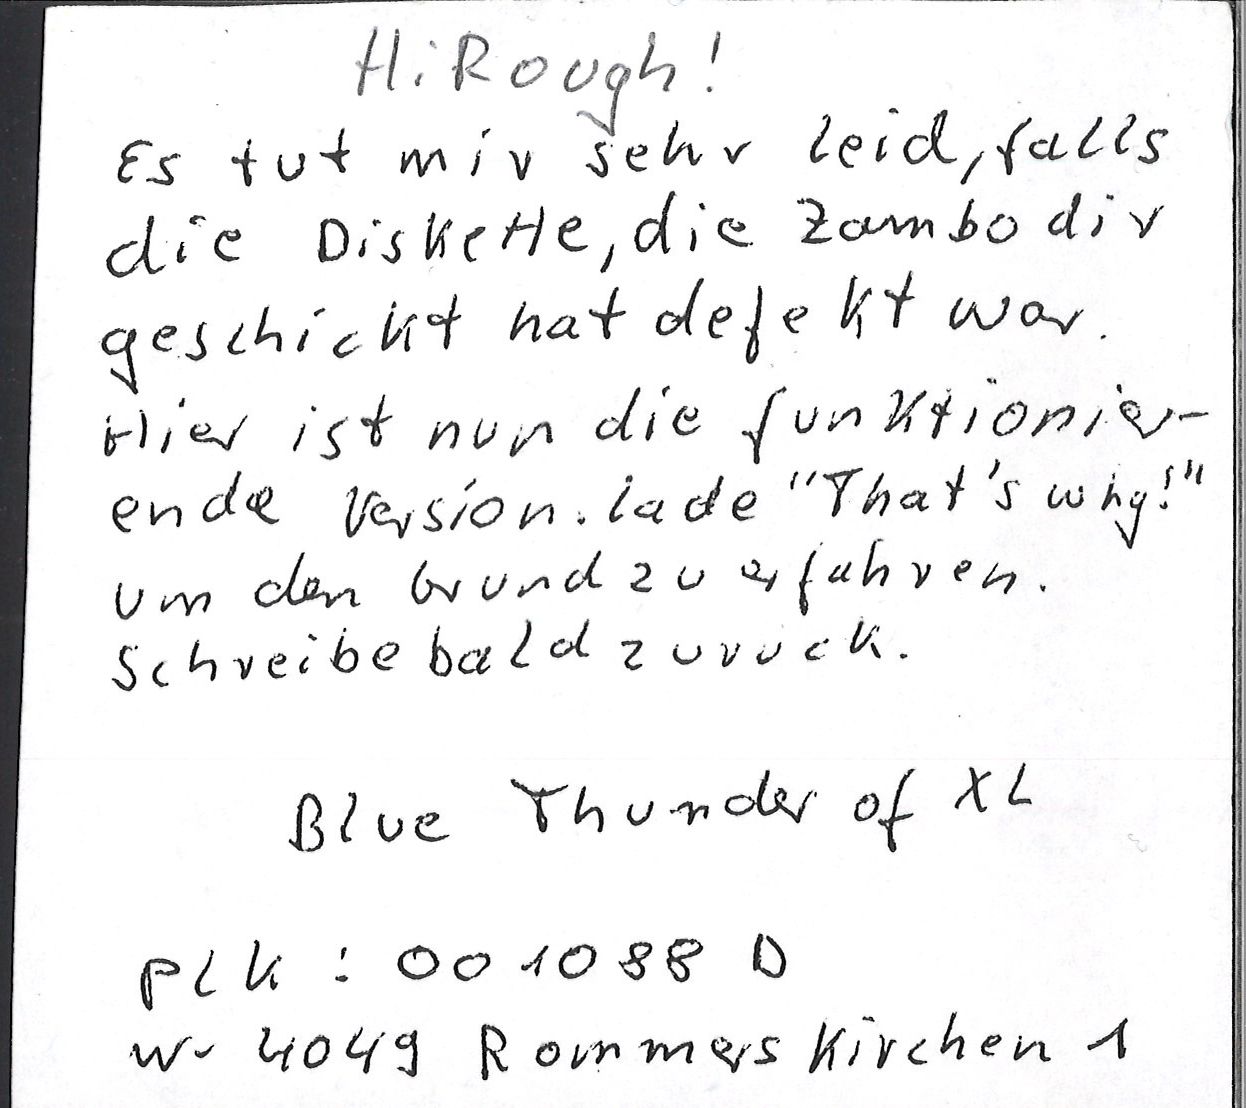 Hi Rough!
Es tut mir sehr leid, falls
die Diskette, die Zambo dir
geschickt hat defekt war.
Hier ist nun die funktionier-
ende Version. lade "That's why!"
um den Grund zu erfahren.
Schreibe bald zuruck.
Blue Thunder of XL
PLK : 001088 D
W- 4049 Rommerskirchen 1